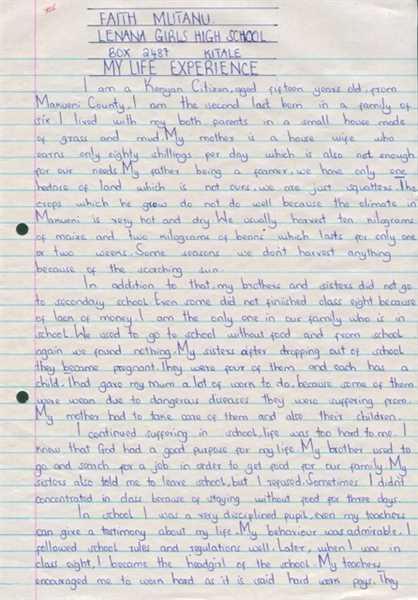 FAITH MUTANU.
LENANA GIRLS HIGH SCHOOL
BOX 2487 KITALE
MY LIFE EXPERIENCE
I am a Kenyan Citizen, aged fifteen years old, from
Makueni County. I am the second last born in a family of
six. I lived with my both parents in a small house made
of grass and mud. My mother is a house wife who
earns only eighty shillings per day which is also not enough
for our needs. My father being a farmer, we have only one
hectare of land which is not ours, we are just squatters. The
crops which he grow do not do well because the climate in
Makueni is very hot and dry. We usually harvest ten kilograms
of maize and two kilograms of beans which lasts for only one
or two weeks. Some seasons we don't harvest anything
because of the scorching sun.
In addition to that, my brothers and sisters did not go
to secondary school. Even some did not finished class eight because
of lack of money. I am the only one in our family who is in
school. We used to go to school without food and from school
again we found nothing. My sisters after dropping out of school
they became pregnant. They were four of them and each has a
child. That gave my mum a lot of work to do, because some of them
were weak due to dangerous diseases they were suffering from.
My mother had to take care of them and also their children.
I continued suffering in school, life was too hard to me. I
know that God had a good purpose for my life. My brother used to
go and search for a job in order to get food for our family. My
sisters also told me to leave school, but I refused. Sometimes I didn't
concentrated in class because of staying without food for three days.
In school I was a very disciplined pupil, even my teachers
can give a testimony about my life. My behaviour was admirable. I
followed school rules and regulations well. Later, when I was in
class eight, I became the headgirl of the school. My teachers
encouraged me to work hard as it is said hard work pays. They